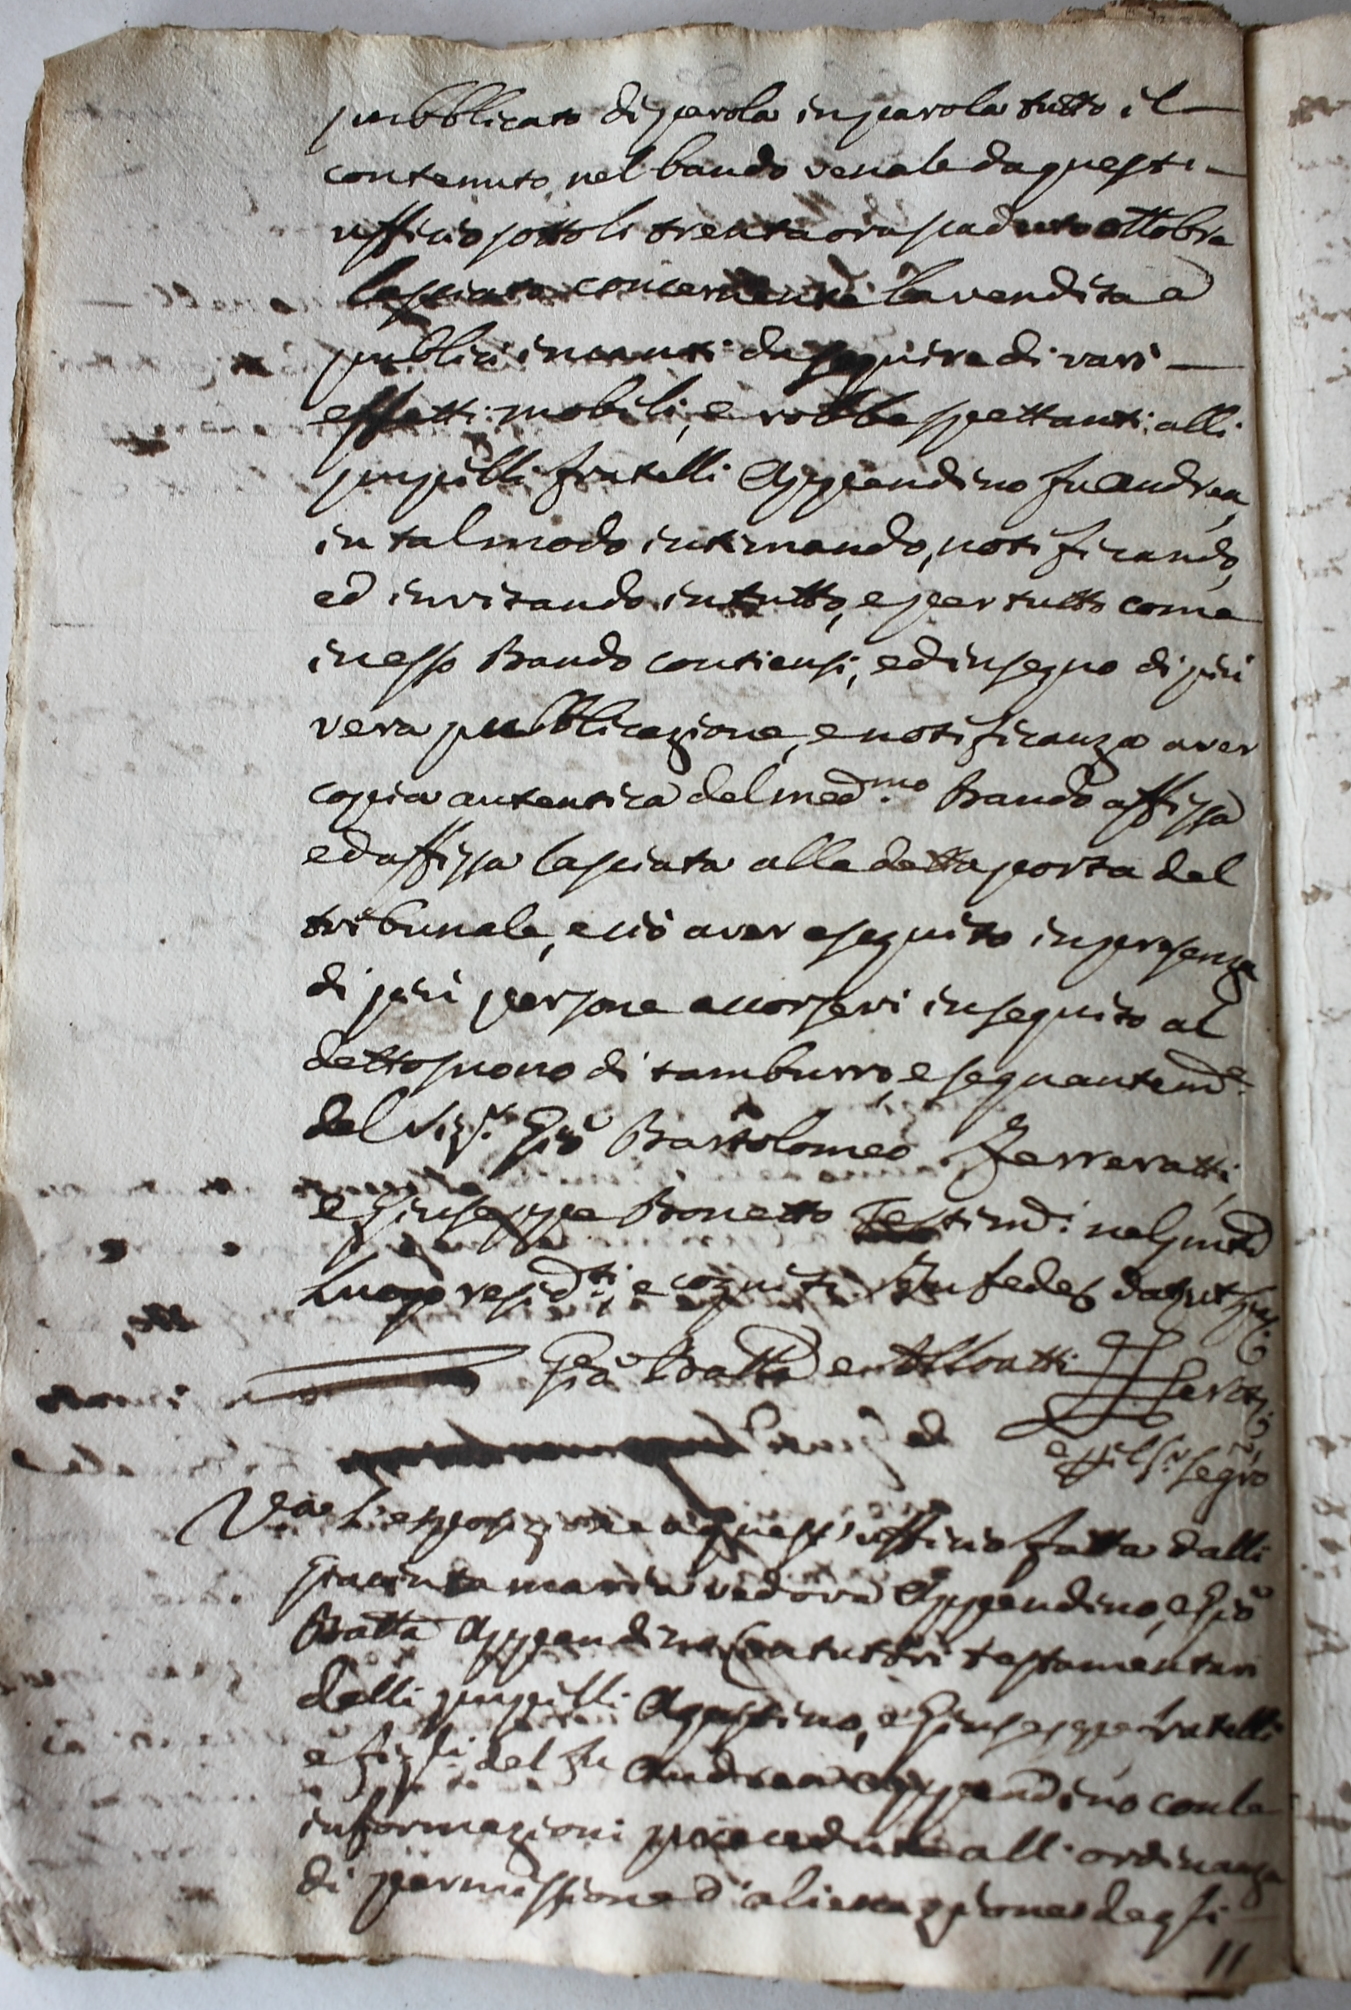 pubblicato di parola in parola tutto il
contenuto nel bando venale da quest'
ufficio sotto li trenta ora scaduto ottobre
lasciato concernente la vendita a
publici incanti da seguire di vari
effetti mobili, e robbe spettanti alli
pupilli fratelli Appendino fu Andrea,
in tal modo intimando, notificando,
ed invitando in tutto, e per tutto come
in esso Bando contiensi, ed in segno di più
vera pubblicazione, e notificanza aver
copia autentica del med.mo Bando affissa
ed affissa lasciata alla detta porta del
tribunale, e ciò aver eseguito in presenza
di più persone accorsevi in seguito al
detto suono di tamburro, e segnantem.e
del Sig.r Gio Bartolomeo Ferreratti,
e Giuseppe Bonetto Testim: nel sud.o
Luogo resid.ti, e cogniti In fede
Gio Batta Alloatti
e pp il Sr Segro
Via L'esposizione a quest'ufficio fatta dalli
Giacinta maria vedova Appendino, e Gio
Batta Appendino Contuttri testamentari
delli pupilli Agostino, e Giuseppe fratelli
e figli del fu Andrea Appendino con le
informazioni precedute all'ordinanza
di permissione d'alienazione degli
11